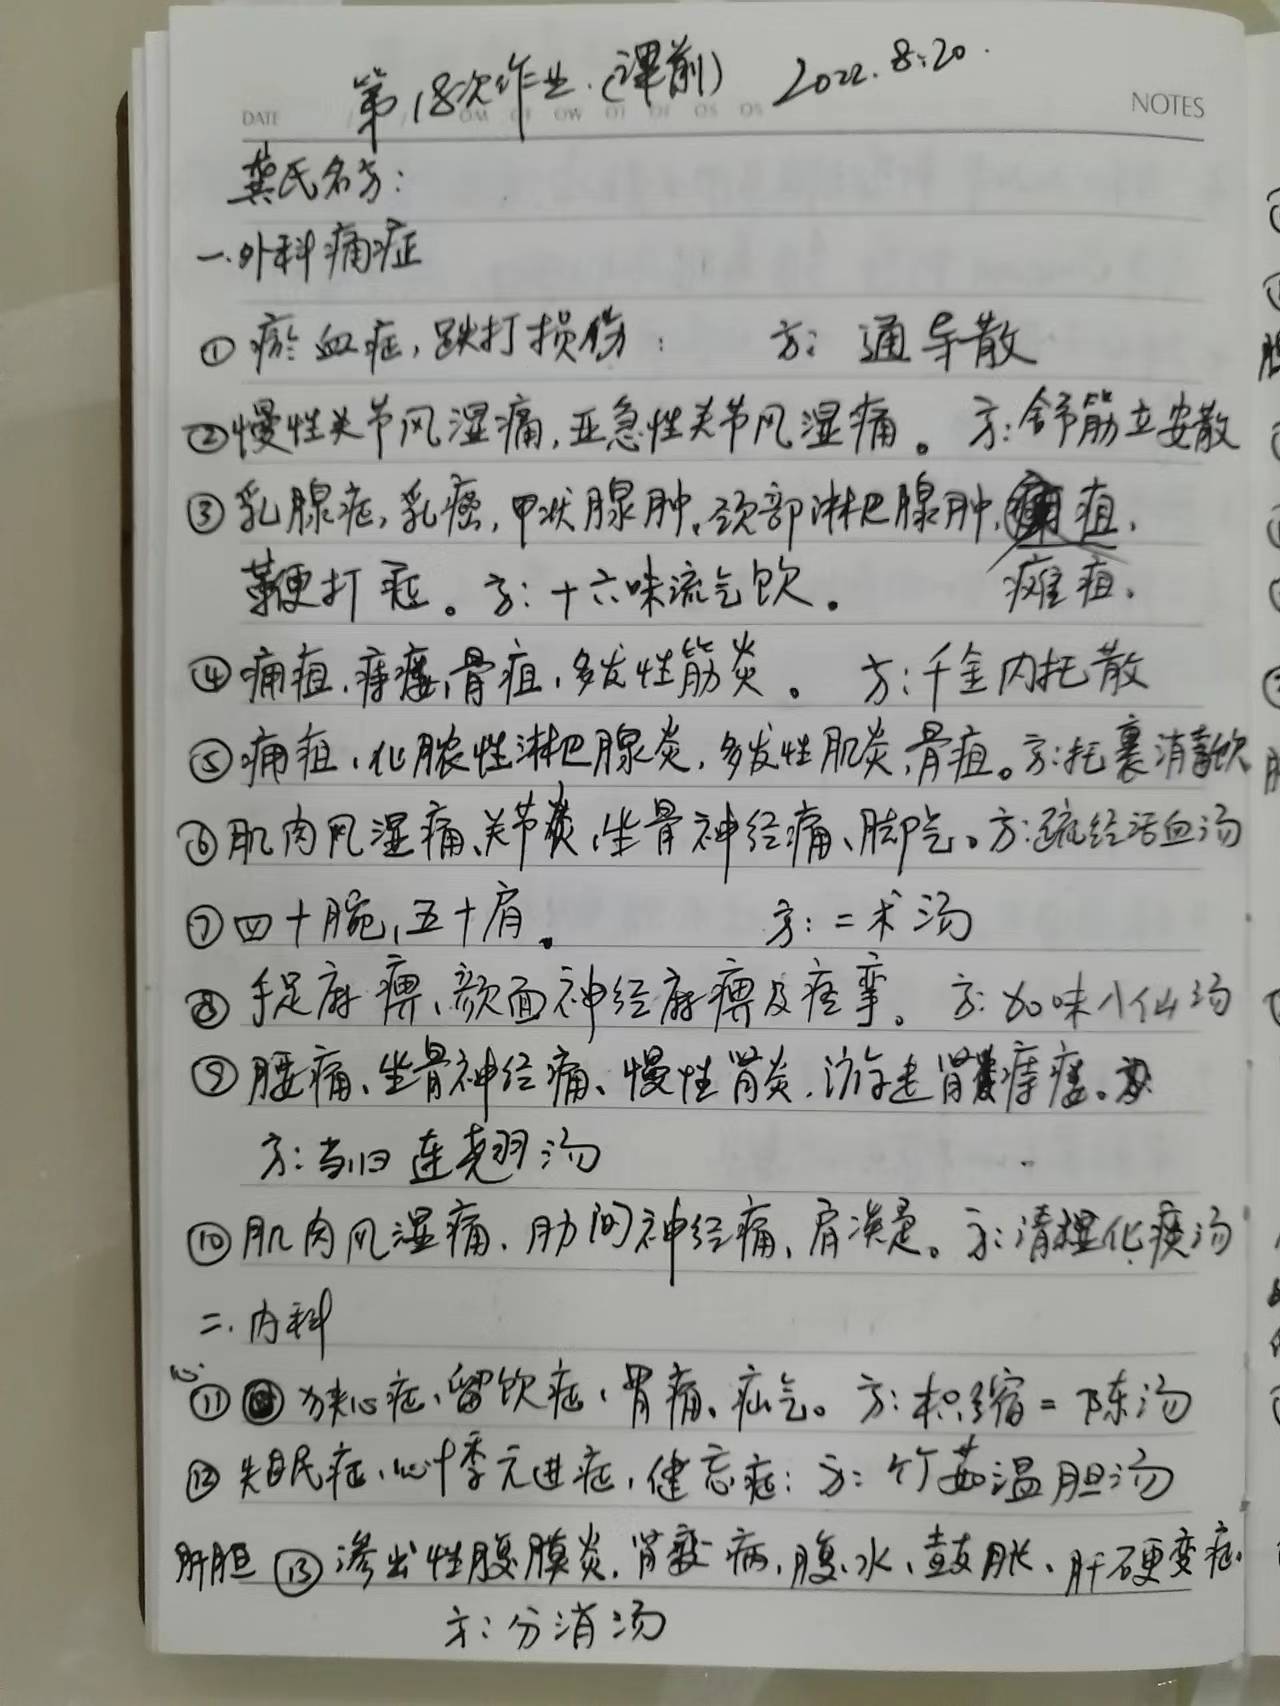 第18次作业.(课前) 2022.8.20.
DATE NOTES
龚氏名方:
一.外科痛症
① 瘀血症,跌打损伤: 方: 通导散
②慢性关节风湿痛,亚急性关节风湿痛。方:舒筋立安散
③乳腺症,乳癌,甲状腺肿,颈部淋巴腺肿,疽,
鞭打症。方:十六味流气饮。 瘫疽.
④痈疽,痔瘘,骨疽,多发性筋炎。 方:千金内托散
⑤痈疽,化脓性淋巴腺炎,多发性肌炎,骨疽。方:托裏消毒饮
⑥肌肉风湿痛、关节炎、坐骨神经痛、脚气。方:疏经活血汤
⑦四十腕,五十肩。 方:二术汤
⑧ 手足麻痹、颜面神经麻痹及痉挛。方:加味八仙汤
⑨ 腰痛、坐骨神经痛、慢性肾炎,游走肾痔瘘。
方:当归连翘汤
⑩肌肉风湿痛、肋间神经痛、肩凝是。方:清湿化痰汤
二.内科
心.
⑪ 狭心症、留饮症、胃痛、疝气。方:枳缩二陈汤
⑫ 失眠症,心悸亢进症,健忘症:方:竹茹温胆汤
肝胆 ⑬ 渗出性腹膜炎,肾变病,腹水、鼓胀、肝硬变症.
方:分消汤